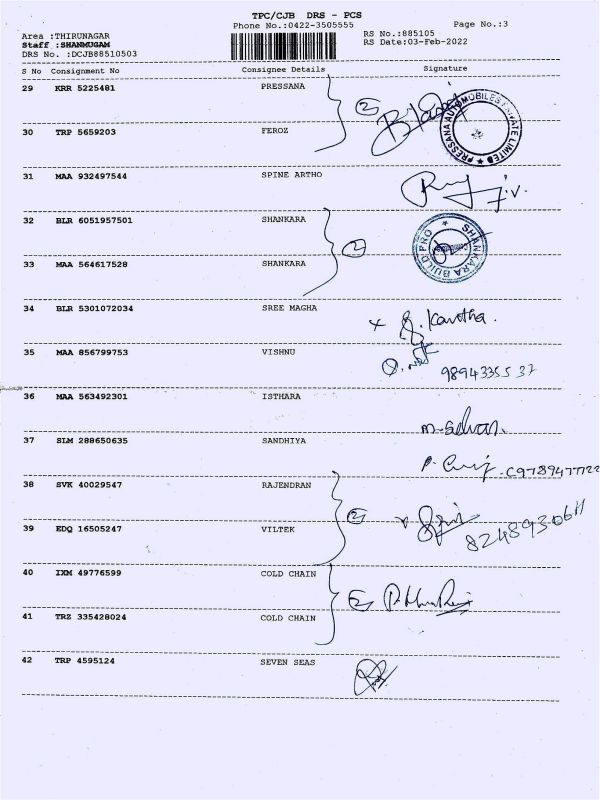 TPC/CJB DRS - PCS
Phone No.:0422-3505555
Page No.:3
Area :THIRUNAGAR
RS No.:885105
Staff :SHANMUGAM
RS Date:03-Feb-2022
DRS No. :DCJB88510503
S No Consignment No Consignee Details Signature
29 KRR 5225481 PRESSANA
PRESSANA AUTOMOBILES PRIVATE LIMITED
30 TRP 5659203 FEROZ
31 MAA 932497544 SPINE ARTHO
32 BLR 6051957501 SHANKARA
SHANKARA BUILD PRO
33 MAA 564617528 SHANKARA
34 BLR 5301072034 SREE MAGHA
35 MAA 856799753 VISHNU
9894335537
36 MAA 563492301 ISTHARA
37 SLM 288650635 SANDHIYA
38 SVK 40029547 RAJENDRAN
39 EDQ 16505247 VILTEK
8248930611
40 IXM 49776599 COLD CHAIN
41 TRZ 335428024 COLD CHAIN
42 TRP 4595124 SEVEN SEAS